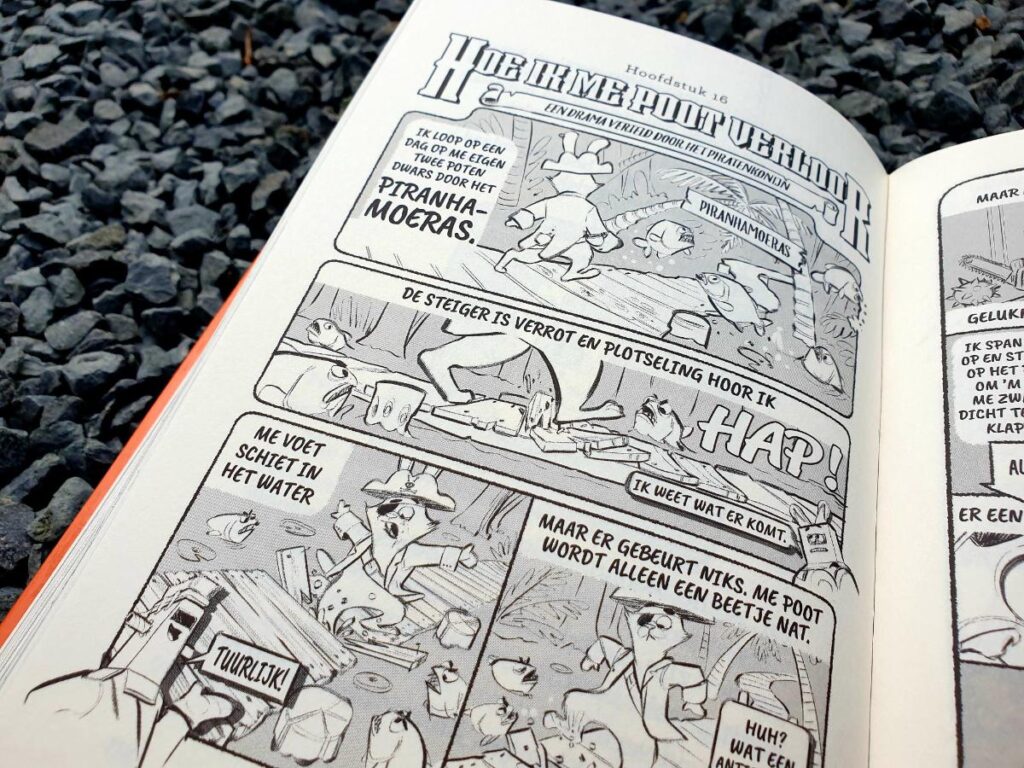 Hoofdstuk 16
HOE IK ME POOT VERLOOR
EEN DRAMA VERTELD DOOR HET PIRATENKONIJN
IK LOOP OP EEN
DAG OP ME EIGEN
TWEE POTEN
DWARS DOOR HET
PIRANHA-
MOERAS.
PIRANHAMOERAS
DE STEIGER IS VERROT EN PLOTSELING HOOR IK
HAP!
IK WEET WAT ER KOMT.
ME VOET
SCHIET IN
HET WATER
TUURLIJK!
MAAR ER GEBEURT NIKS. ME POOT
WORDT ALLEEN EEN BEETJE NAT.
HUH?
WAT EEN
MAAR
GELUKK
IK SPAN
OP EN ST
OP HET
OM 'M
ME ZW
DICHT T
KLAP
AL
ER EEN